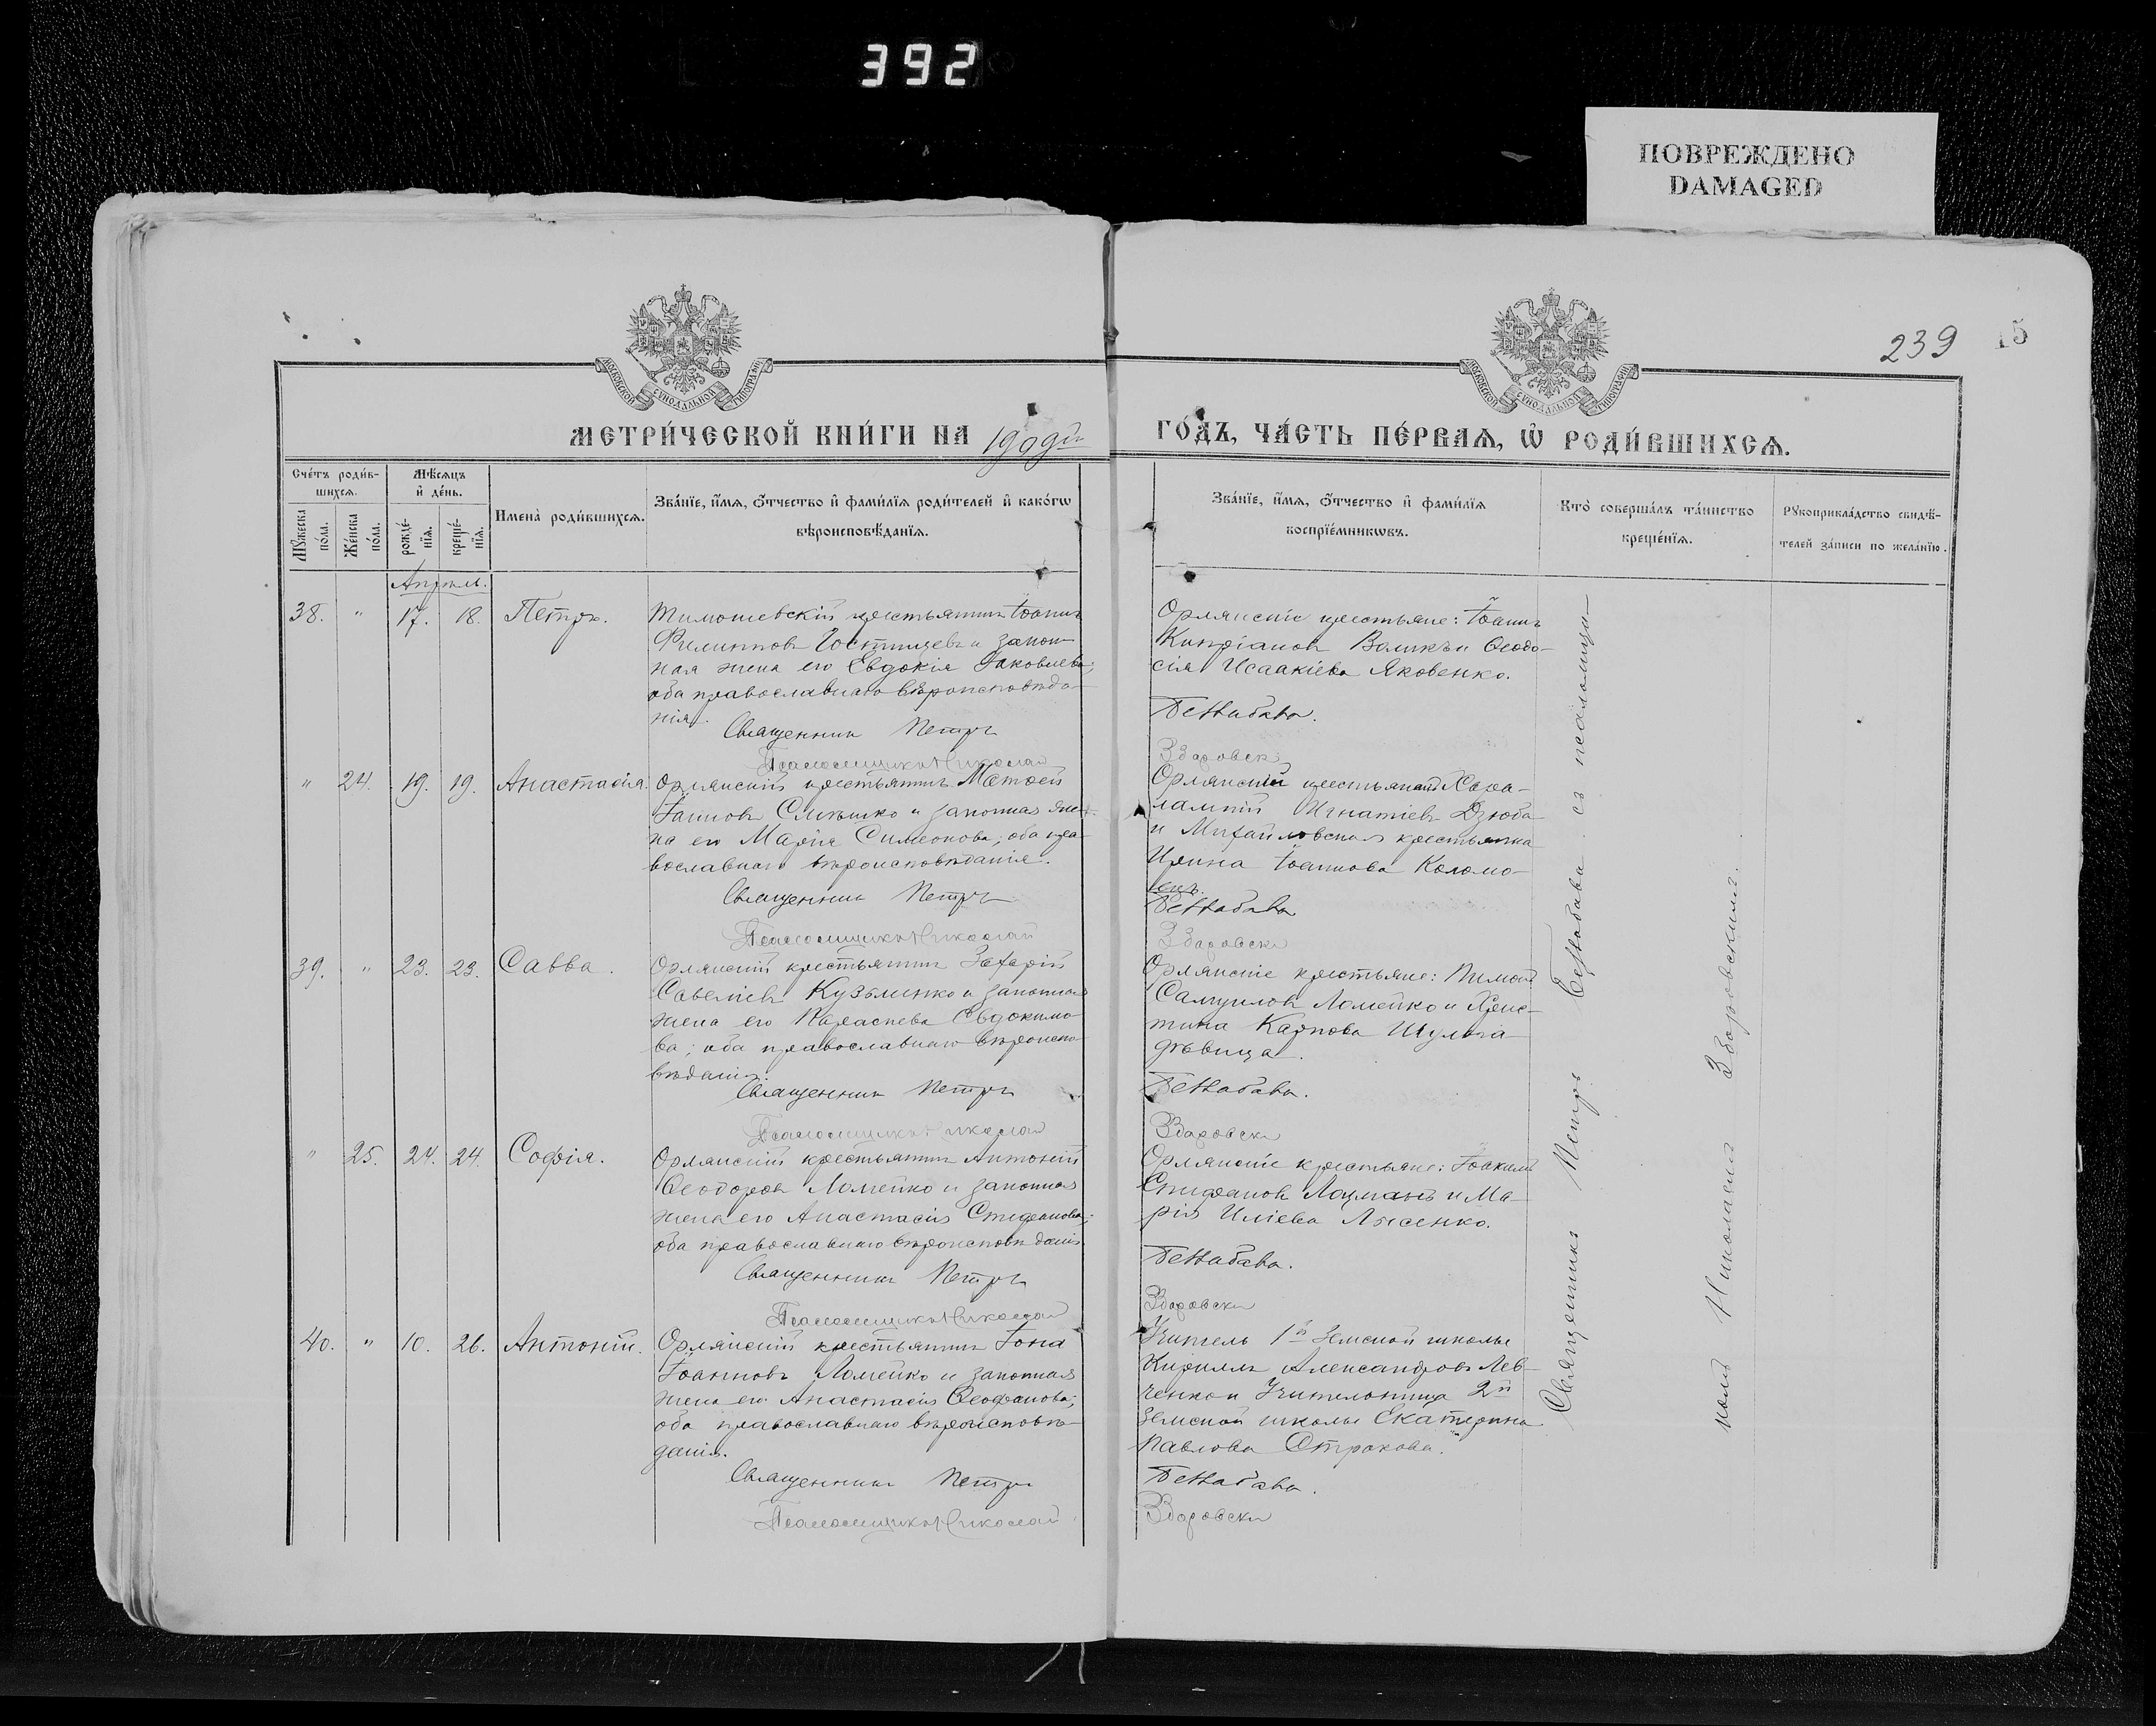 392
ПОВРЕЖДЕНО
DAMAGED
239 15
МОСКОВСКОЙ СУНОДАЛЬНОЙ ТИПОГРАФІИ
МОСКОВСКОЙ СУНОДАЛЬНОЙ ТИПОГРАФІИ
МЕТРИ́ЧЕСКОЙ КНИ́ГИ НА 1909й
ГО́ДЪ, ЧА́СТЬ ПЕ́РВАѦ, Ѡ҆ РОДИ́ВШИХСѦ.
Сче́тъ роди́в-
шихсѧ.
Мѣ́сѧцъ
и҆ де́нь.
Мꙋ́жеска
по́ла.
Же́нска
по́ла.
рожде́-
нїѧ.
креще́-
нїѧ.
Имена̀ роди́вшихсѧ.
Зва́нїе, и҆́мѧ, ѻ҆́тчество и҆ фами́лїѧ роди́телей и҆ како́гѡ
вѣроисповѣ́данїѧ.
Зва́нїе, и҆́мѧ, ѻ҆́тчество и҆ фами́лїѧ
воспрїе́мникѡвъ.
Кто̀ соверша́лъ та́инство
креще́нїѧ.
Рꙋкоприкла́дство свидѣ́-
телей за́писи по жела́нїю.
Апрѣль.
38. " 17. 18. Петръ.
Тимошевскій крестьянинъ Іоаннъ
Филипповъ Гостищевъ и закон-
ная жена его Евдокія Іаковлева;
оба православнаго вѣроисповѣда-
нія.
Священникъ Петръ
Псаломщикъ Николай
Орлянскіе крестьяне: Іоаннъ
Кипріановъ Воликъ и Ѳеодо-
сія Исаакіева Яковенко.
Беззабава.
Здаровскій
" 24. 19. 19. Анастасія.
Орлянскій крестьянинъ Матѳей
Іоанновъ Слѣпко и законная же-
на его Марія Симеонова; оба пра-
вославнаго вѣроисповѣданія.
Священникъ Петръ
Псаломщикъ Николай
Орлянскій крестьянинъ Хара-
лампій Игнатіевъ Дзюба
и Михайловская крестьянка
Ирина Іоаннова Коломо-
ецъ.
Беззабава
Здаровскій
39. " 23. 23. Савва.
Орлянскій крестьянинъ Захарій
Савеліевъ Кузьменко и законная
жена его Параскева Евдокимо-
ва; оба православнаго вѣроиспо-
вѣданія.
Священникъ Петръ
Псаломщикъ Николай
Орлянскіе крестьяне: Пименъ
Самуиловъ Ломейко и Хрис-
тина Карпова Шульга
дѣвица.
Беззабава.
Здаровскій
" 25. 24. 24. Софія.
Орлянскій крестьянинъ Антоній
Ѳеодоровъ Ломейко и законная
жена его Анастасія Стефанова;
оба православнаго вѣроисповѣданія.
Священникъ Петръ
Псаломщикъ Николай
Орлянскіе крестьяне: Іоакимъ
Стефановъ Лоцманъ и Ма-
рія Иліева Лысенко.
Беззабава.
Здаровскій
40. " 10. 26. Антоній.
Орлянскій крестьянинъ Іона
Іоанновъ Ломейко и законная
жена его Анастасія Ѳеофанова;
оба православнаго вѣроисповѣ-
данія.
Священникъ Петръ
Псаломщикъ Николай
Учитель 1й земской школы
Кириллъ Александровъ Лев-
ченко и Учительница 2й
земской школы Екатерина
Павлова Отрокова.
Беззабава.
Здаровскій
Священникъ Петръ Беззабава съ псаломщи-
комъ Николаемъ Здаровскимъ.